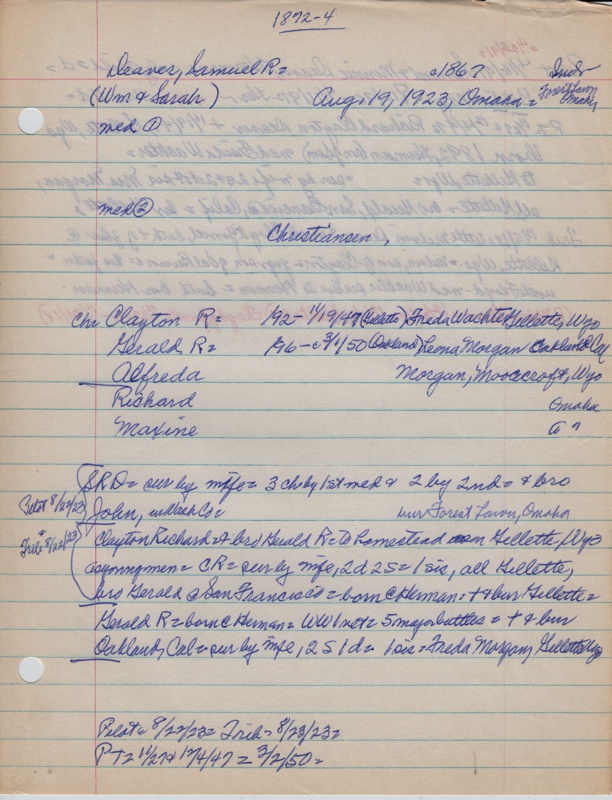 1872-4
Deaver, Samuel R= c1867 Ind=
(Wm & Sarah) Aug. 19, 1923, Omaha= Forest Lawn Omaha
med ①
med ②
Christiansen,
chr Clayton R= 192- 11/19/47 (Gillette) Freda Wachte Gillette, Wyo
Gerald R= 196- c3/1/50 (Oakland) Leona Morgan Oakland Cal
Alfreda Morgan, Moorcroft, Wyo
Richard Omaha
Maxine " "
SRD= sur by wife= 3 ch by 1st med & 2 by 2nd= & bro
Pilot 8/22/23 John, Wash Co= bur Forest Lawn, Omaha
Trib= 8/23/23 Clayton Richard= & bro Herald R= to homestead Gillette, Wyo
as young men= CR= sur by wife, 2d 2S= 1 sis, all Gillette,
bro Gerald @ San Francisco= born @ Herman= + & bur Gillette=
Gerald R= born @ Herman= WW1 vet= 5 major battles= + & bur
Oakland, Cal= sur by wife, 2S 1d= 1 sis= Freda Morgan, Gillette Wyo
Pilot= 8/22/23= Trib= 8/23/23=
PT= 11/27 & 12/4/47= 3/2/50=